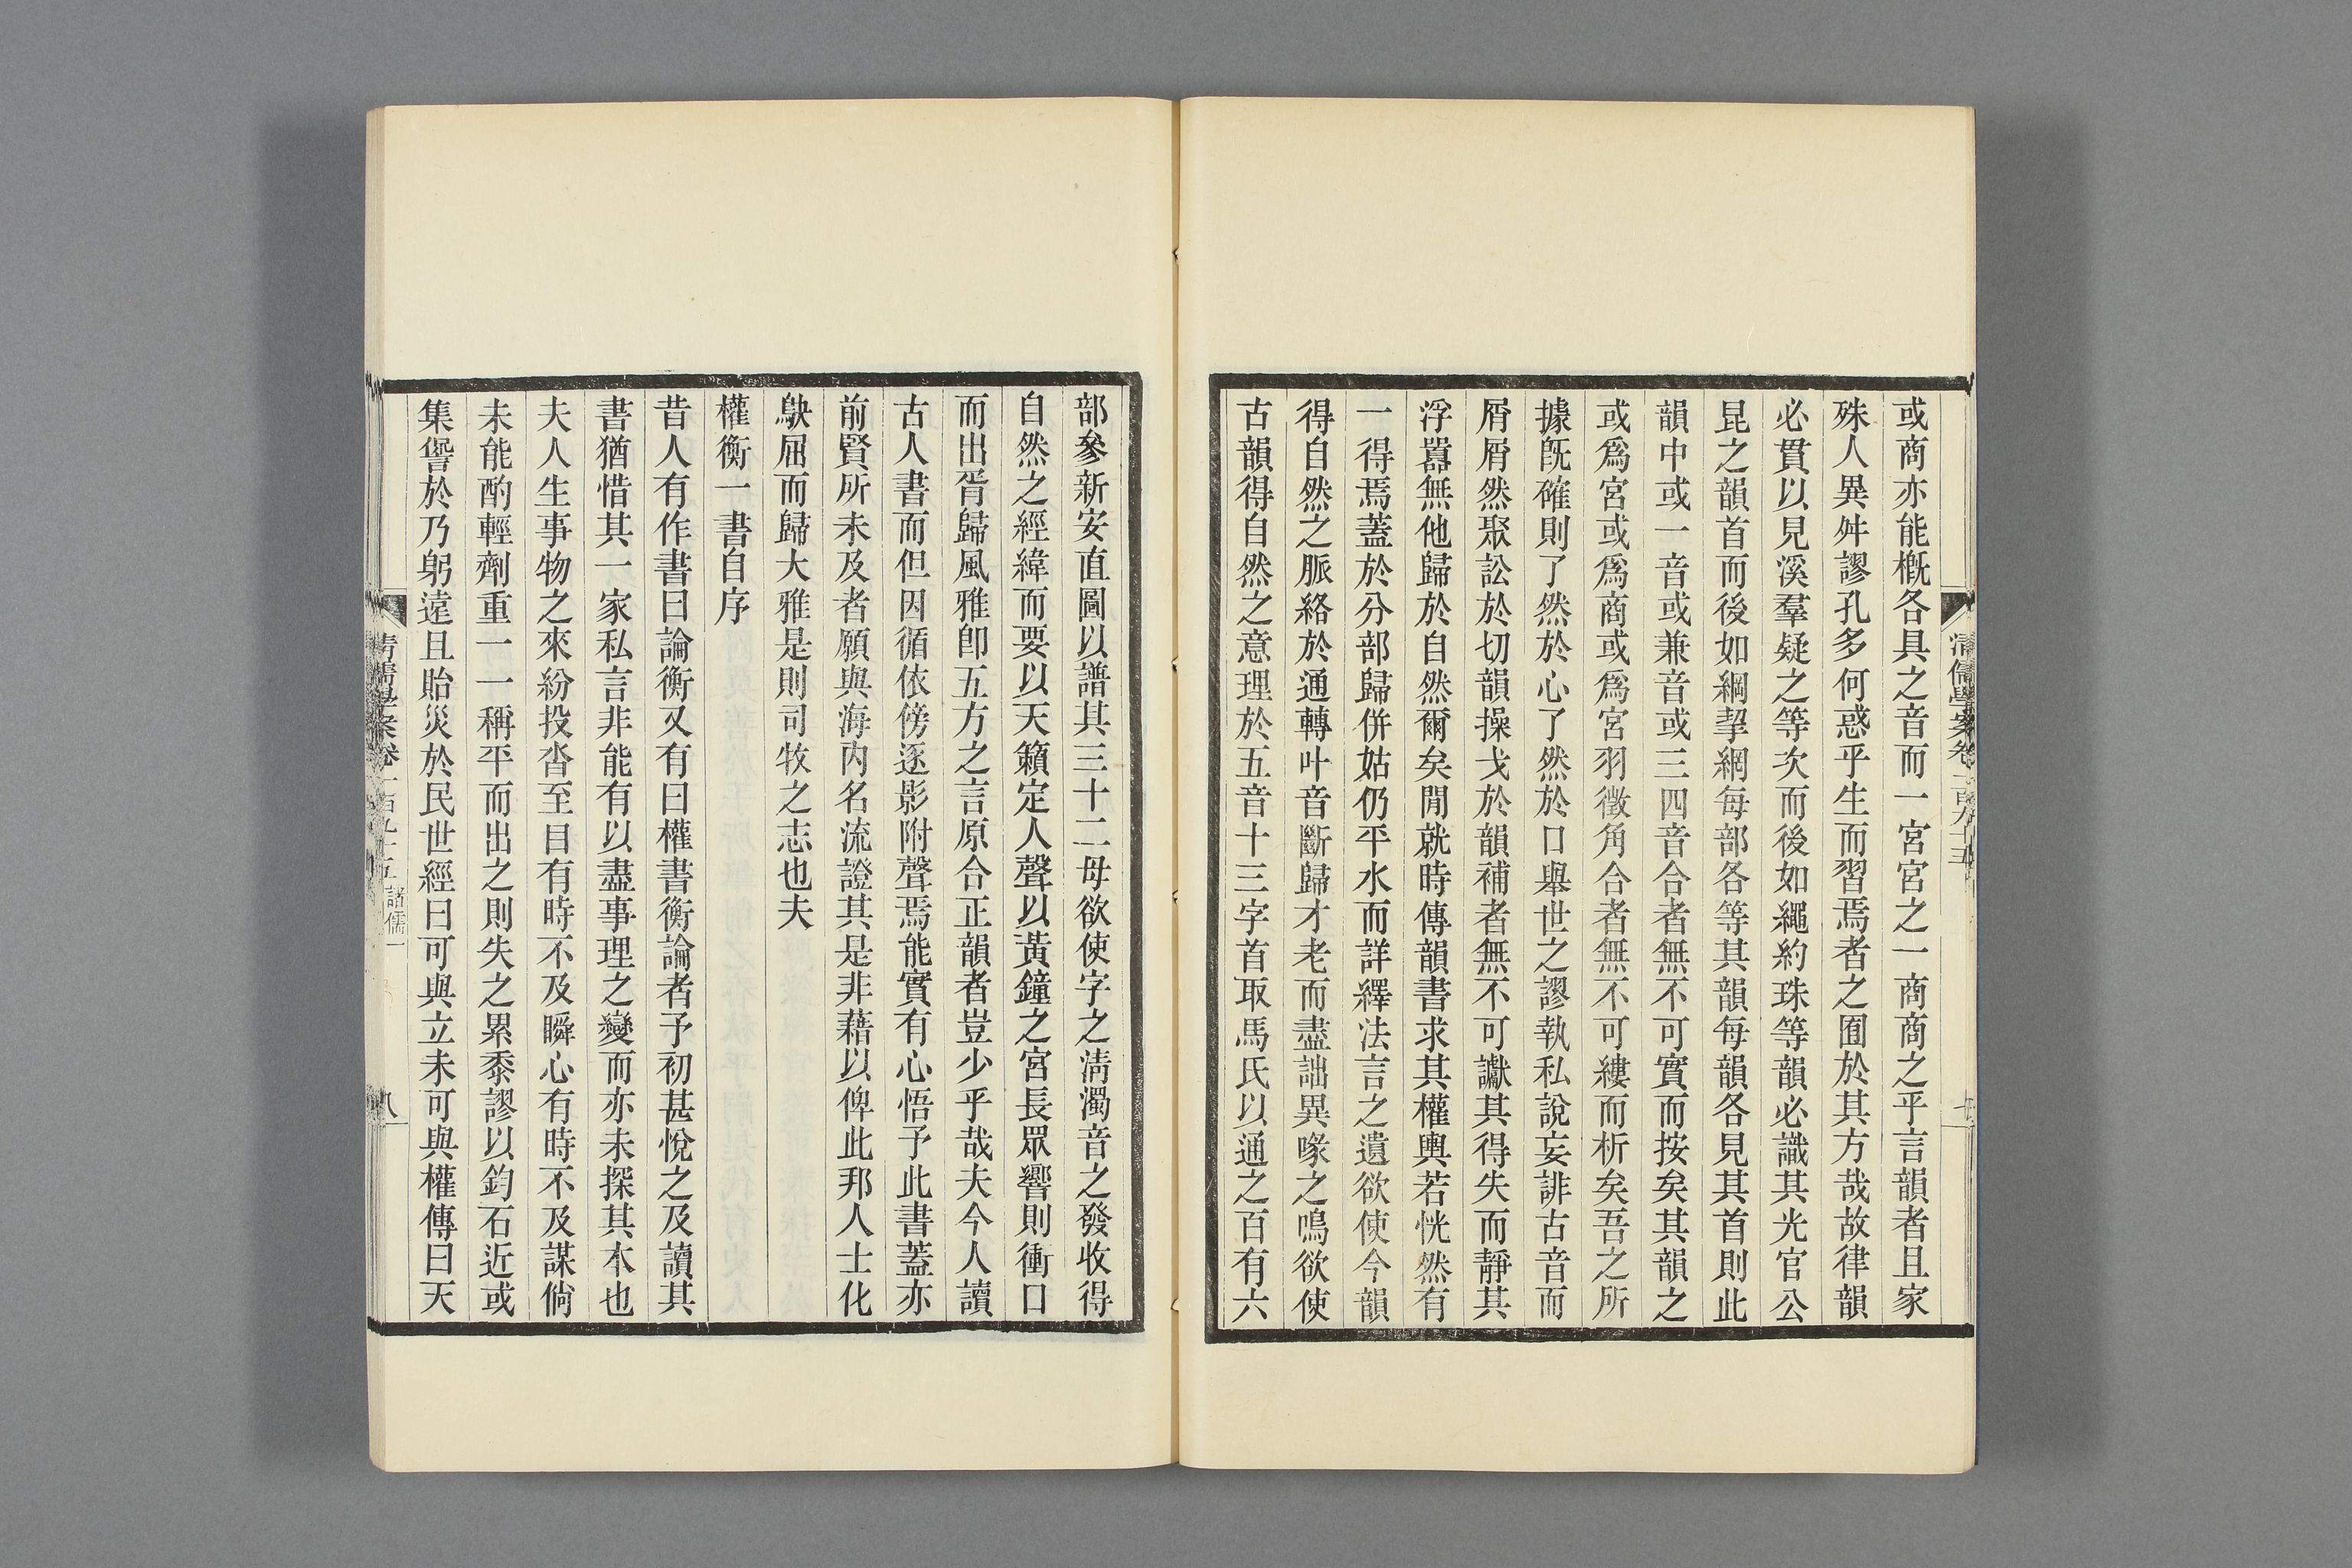 清儒學案卷一百九十五
或商亦能槪各具之音而一宮宮之一商商之乎言韻者且家
殊人異舛謬孔多何惑乎生而習焉者之囿於其方哉故律韻
必貫以見溪羣疑之等次而後如繩約珠等韻必識其光官公
昆之韻首而後如綱挈網每部各等其韻每韻各見其首則此
韻中或一音或兼音或三四音合者無不可實而按矣其韻之
或爲宮或爲商或爲宮羽徵角合者無不可縷而析矣吾之所
據旣確則了然於心了然於口舉世之謬執私說妄誹古音而
屑屑然聚訟於切韻操戈於韻補者無不可讞其得失而靜其
浮囂無他歸於自然爾矣閒就時傳韻書求其權輿若恍然有
一得焉蓋於分部歸併姑仍平水而詳繹法言之遺欲使今韻
得自然之脈絡於通轉叶音斷歸才老而盡詘異喙之鳴欲使
古韻得自然之意理於五音十三字首取馬氏以通之百有六
部參新安直圖以譜其三十二母欲使字之淸濁音之發收得
自然之經緯而要以天籟定人聲以黃鐘之宮長眾響則衝口
而出胥歸風雅卽五方之言原合正韻者豈少乎哉夫今人讀
古人書而但因循依傍逐影附聲焉能實有心悟予此書蓋亦
前賢所未及者願與海內名流證其是非藉以俾此邦人士化
鴃屈而歸大雅是則司牧之志也夫
權衡一書自序
昔人有作書曰論衡又有曰權書衡論者予初甚悅之及讀其
書猶惜其一家私言非能有以盡事理之變而亦未探其本也
夫人生事物之來紛投沓至目有時不及瞬心有時不及謀倘
未能酌輕劑重一一稱平而出之則失之累黍謬以鈞石近或
集訾於乃躬遠且貽災於民世經曰可與立未可與權傳曰天
清儒學案卷一百九十五 諸儒一
八